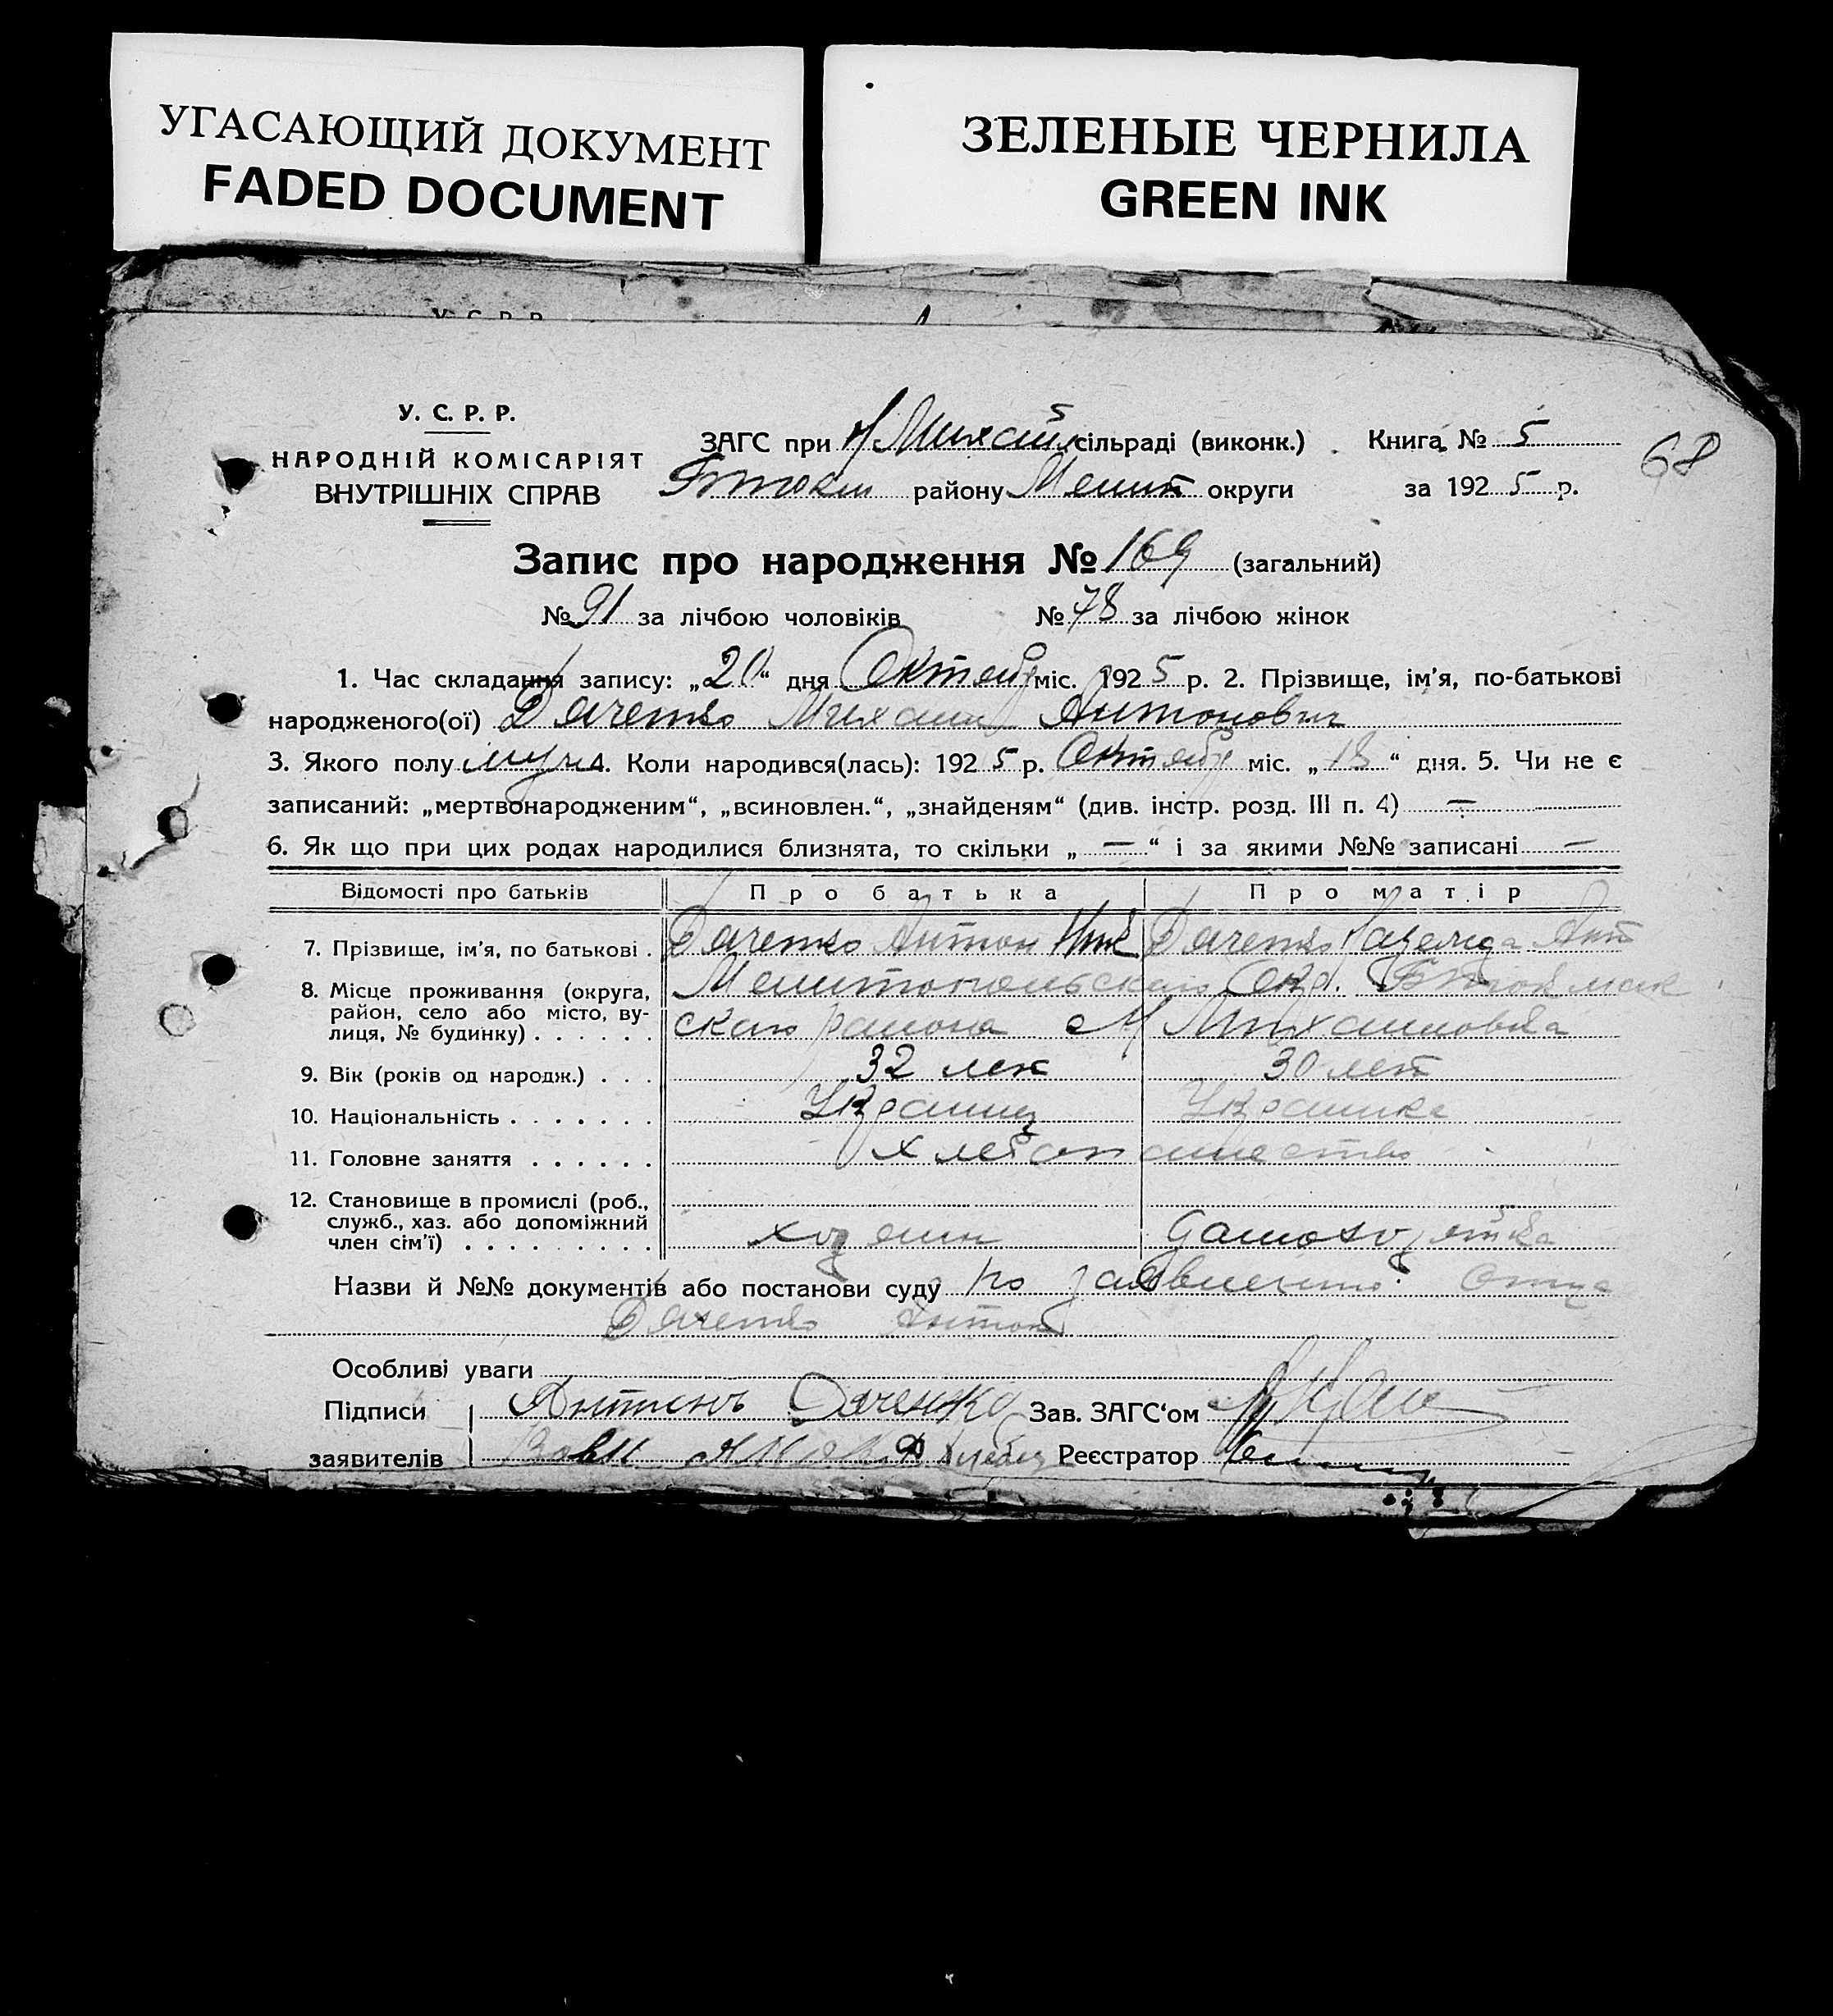 УГАСАЮЩИЙ ДОКУМЕНТ
FADED DOCUMENT
ЗЕЛЕНЫЕ ЧЕРНИЛА
GREEN INK
У. С. Р. Р.
НАРОДНІЙ КОМІСАРІЯТ
ВНУТРІШНІХ СПРАВ
ЗАГС при Н Михай сільраді (виконк.) Книга № 5
68
району Мелит округи за 192 5 р.
Запис про народження № 169 (загальний)
№ 91 за лічбою чоловіків № 78 за лічбою жінок
1. Час складання запису: „20“ дня Октябр міс. 192 5 р. 2. Прізвище, ім’я, по-батькові
народженого(ої) Дяченко Михаил Антонович
3. Якого полу муж 4. Коли народився(лась): 192 5 р. Октябр міс. „18“ дня. 5. Чи не є
записаний: „мертвонародженим“, „всиновлен.“, „знайденям“ (див. інстр. розд. III п. 4) —
6. Як що при цих родах народилися близнята, то скільки „ — “ і за якими №№ записані —
Відомості про батьків Про батька Про матір
7. Прізвище, ім’я, по батькові . Дяченко Антон Ник Дяченко Ант
8. Місце проживання (округа, Мелитопольскаго Окр. Б Токмак
район, село або місто, ву-
лиця, № будинку) . . . . . . скаго района с М Михайловка
9. Вік (років од народж.) . . . 32 лет 30 лет
10. Національність . . . . . . . Украинец Украинка
11. Головне заняття . . . . . . хлебопашество
12. Становище в промислі (роб.,
служб., хаз. або допоміжний
член сім’ї) . . . . . . . . . хозяин домохозяйка
Назви й №№ документів або постанови суду по заявлению отца
Дяченко Антон
Особливі уваги
Підписи Антинъ Дяченко Зав. ЗАГС‘ом
заявителів Реєстратор